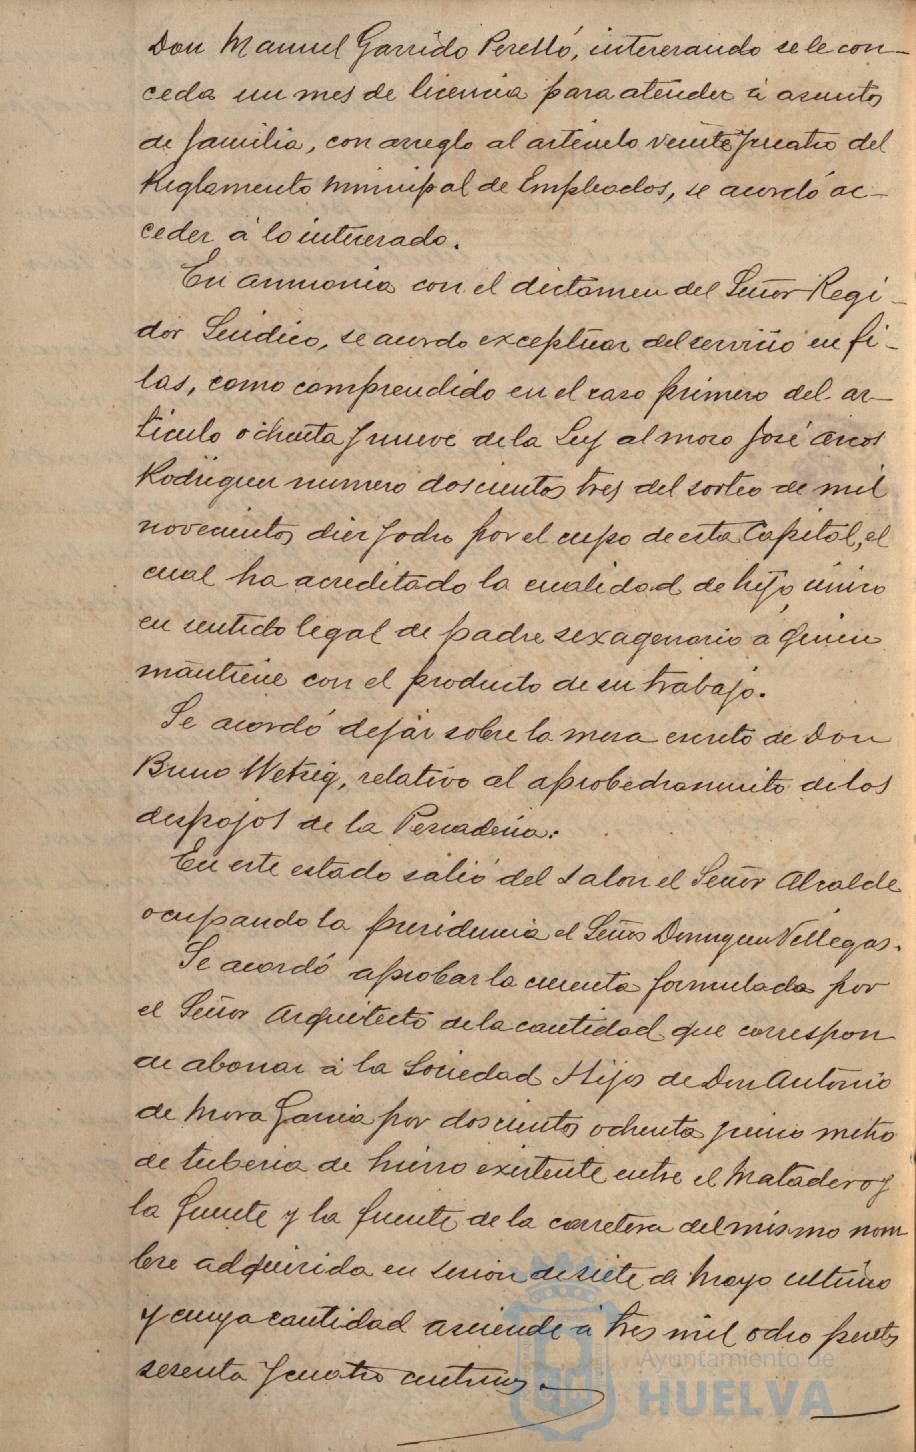 Don Manuel Garrido Perelló, interesando se le con-
ceda un mes de licencia para atender á asuntos
de familia, con arreglo al articulo veinte y cuatro del
Reglamento Municipal de Empleados, se acordó ac-
ceder á lo interesado.
En armonia con el dictamen del Señor Regi-
dor Sindico, se acordo exceptuar del servicio en fi-
las, como comprendido en el caso primero del ar-
ticulo ochenta y nueve de la Ley al mozo José Arcos
Rodriguez numero doscientos tres del sorteo de mil
novecientos diez y ocho por el cupo de esta Capital, el
cual ha acreditado la cualidad de hijo único
en sentido legal de padre sexagenario á quien
mantiene con el producto de su trabajo.
Se acordó dejar sobre la mesa escrito de Don
Bruno Wetzig, relativo al aprobechamiento de los
despojos de la Pescaderia.
En este estado salió del salon el Señor Alcalde
ocupando la presidencia el Señor Dominguez Villegas.
Se acordó aprobar la cuenta formulada por
el Señor Arquitecto de la cantidad que correspon
de abonar á la Sociedad Hijos de Don Antonio
de Mora Garcia por doscientos ochenta y cinco metro
de tuberia de hierro existente entre el Matadero y
la fuente y la fuente de la carretera del mismo nom
bre adquirida en sesion de siete de Mayo ultimo
y cuya cantidad asciende á tres mil ocho pesetas
sesenta y cuatro centimos.
Ayuntamiento de
HUELVA